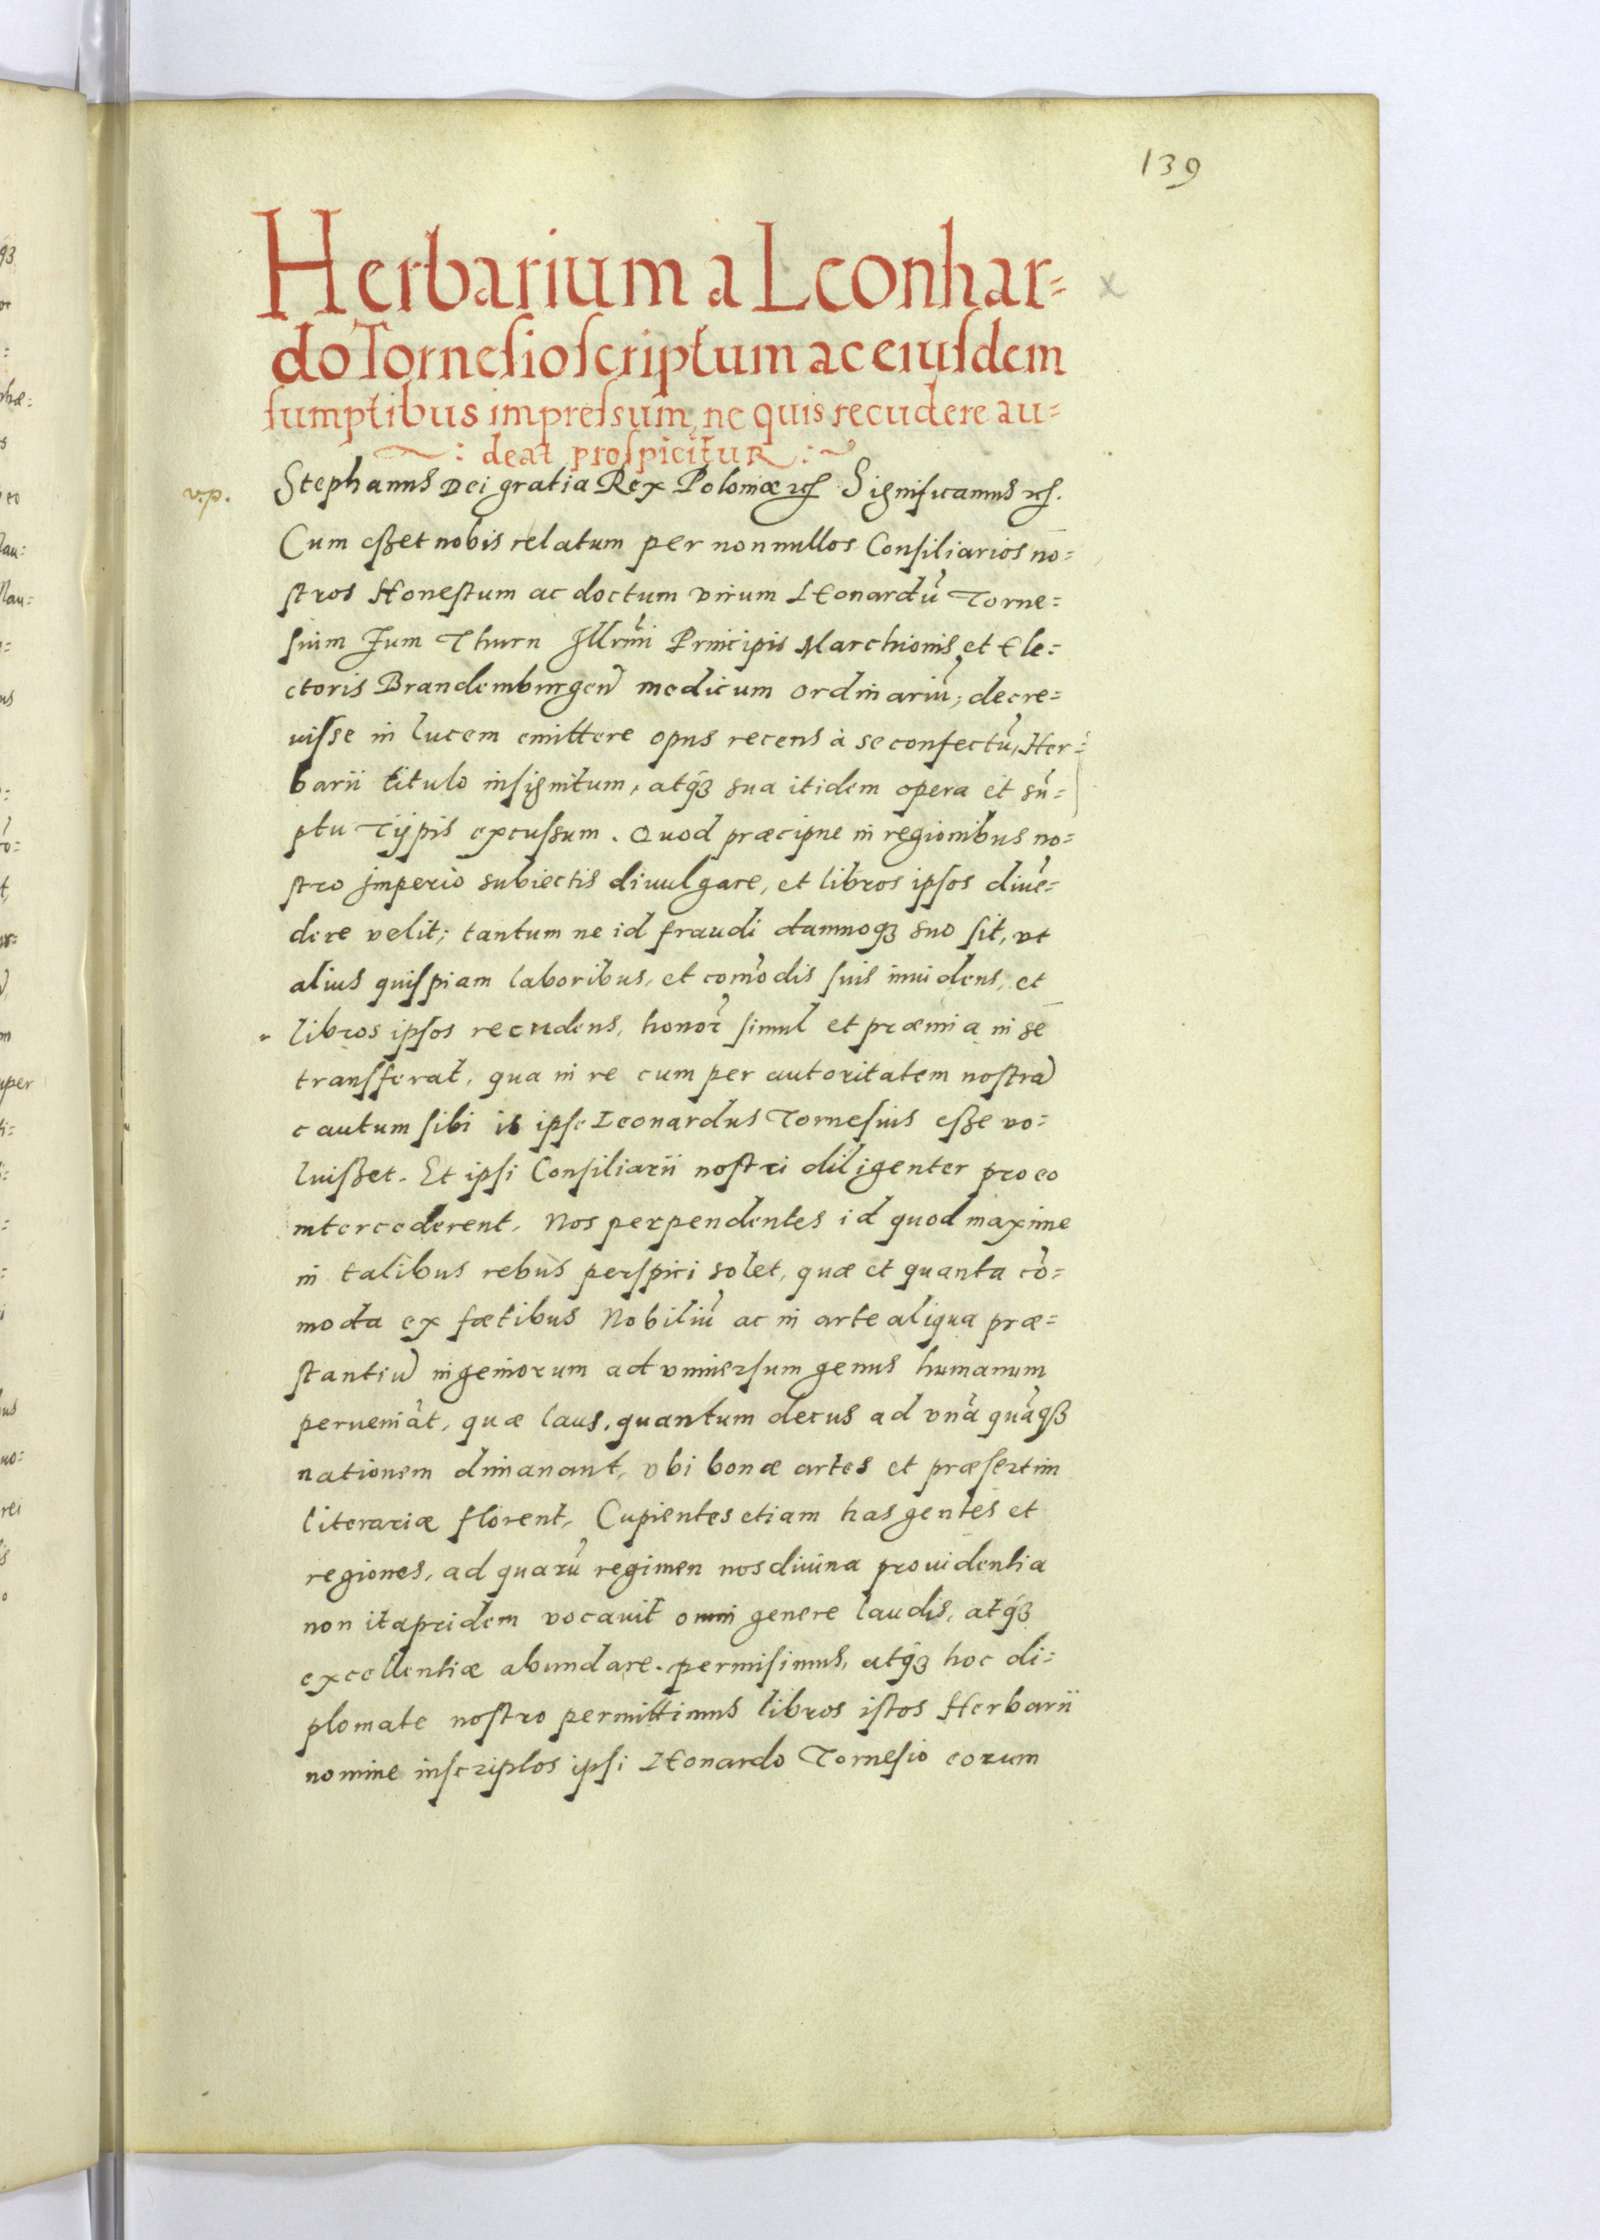 139
Herbarium a Leonhar=
do Tornesio scriptum ac eiusdem
sumptibus impressum, ne quis recudere au=
deat prospicitur
v.p.
Stephanus Dei gratia Rex Poloniæ etc Significamus etc.
Cum esset nobis relatum per nonnullos Consiliarios no=
stros Honestum ac doctum virum Leonardũ Torne=
sium Zum Thurn Illrmi Principis Marchionis et Ele=
ctoris Brandemburgen̄ medicum ordinariũ, decre=
uisse in lucem emittere opus recens à se confectũ, Her=
barii titulo insignitum, atq́ꝫ sua itidem opera et sũ=
ptu Typis excussum. Quod præcipue in regionibus no=
stro imperio subiectis diuulgare, et libros ipsos diuẽ=
dere velit; tantum ne id fraudi damnoqꝫ suo sit, vt
alius quispiam laboribus, et com̃odis suis inuidens, et
libros ipsos recudens, honor̃ simul et præmia in se
transferat, qua in re cum per autoritatem nostrã
cautum sibi is ipse Leonardus Tornesius esse vo=
luisset. Et ipsi Consiliarii nostri diligenter pro eo
intercederent, Nos perpendentes id quod maxime
in talibus rebus perspici solet, quæ et quanta cõ=
moda ex fœtibus Nobiliũ ac in arte aliqua præ=
stantiũ ingeniorum ad vniuersum genus humanum
perueniãt, quæ laus, quantum decus ad vnã quãqꝫ
nationem dimanant, vbi bonæ artes et præsertim
literariæ florent, Cupientes etiam has gentes et
regiones, ad quarũ regimen nos diuina prouidentia
non itapridem vocauit omni genere laudis, atq́ꝫ
excellentiæ abundare. permisimus, atq́ꝫ hoc di=
plomate nostro permittimus libros istos Herbarii
nomine inscriptos ipsi Leonardo Tornesio eorum